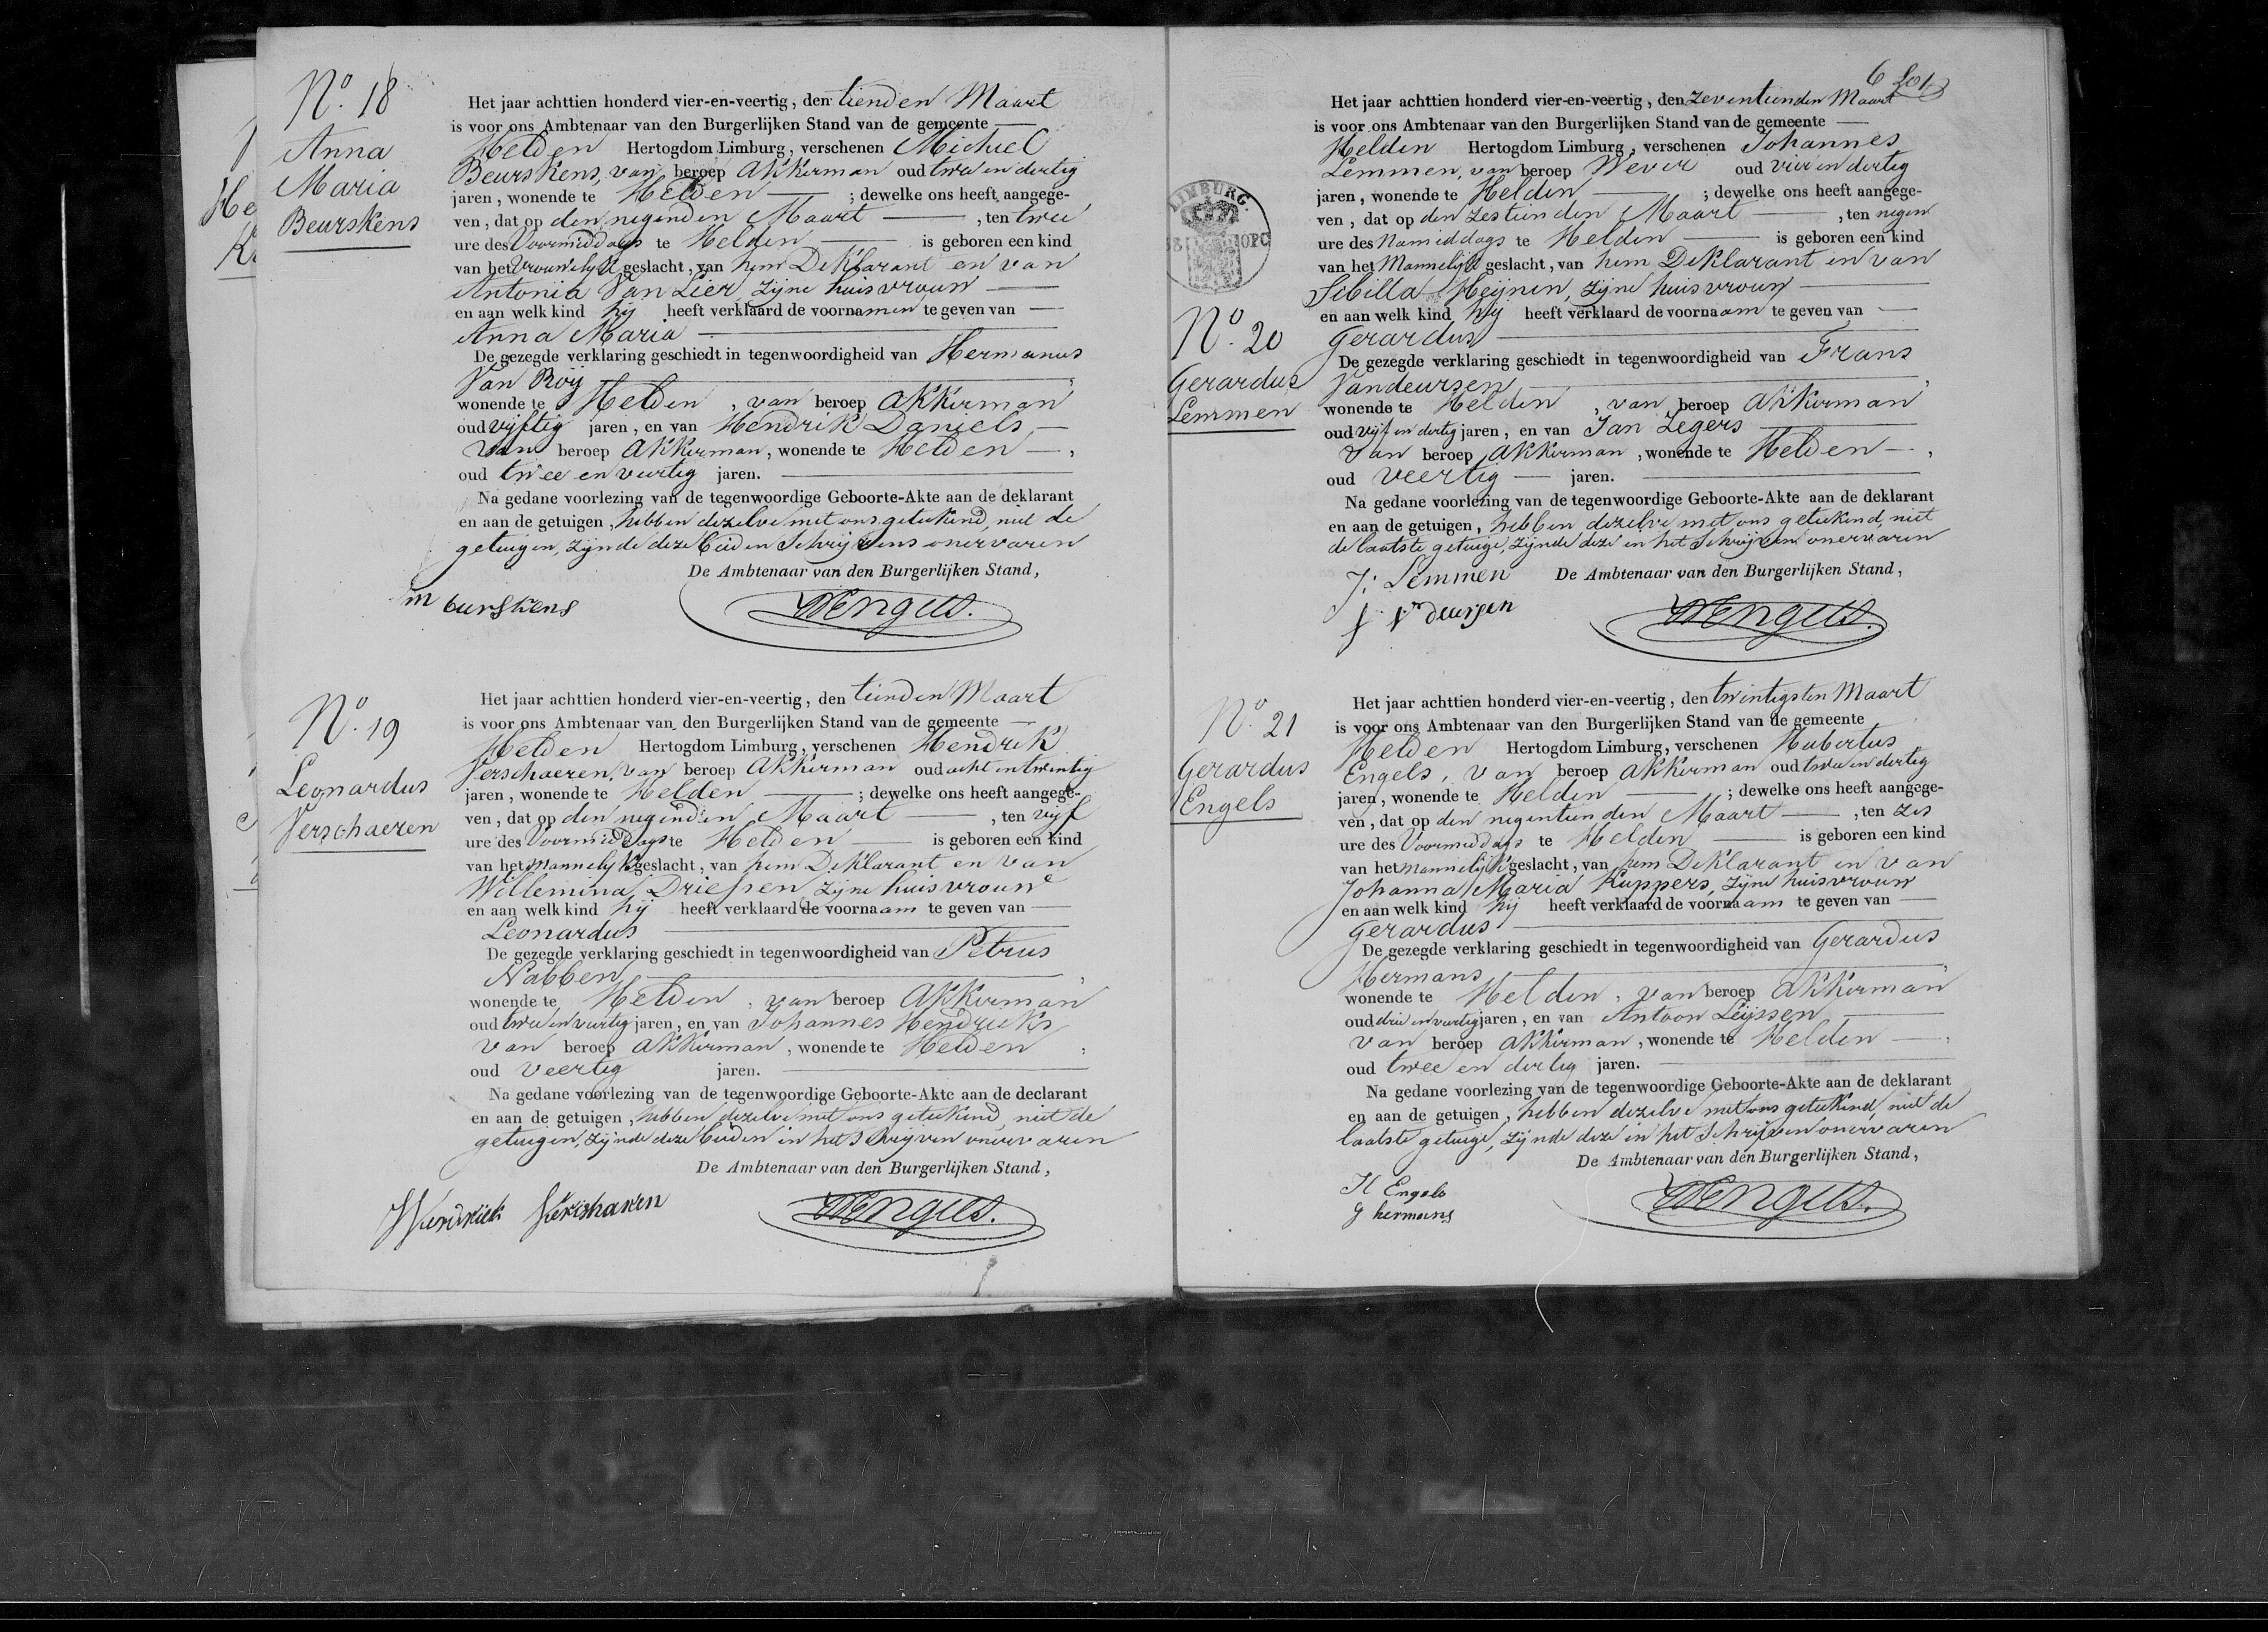 No. 18
Anna
Maria
Beurskens
Het jaar achttien honderd vier-en-veertig, den tienden Maart
is voor ons Ambtenaar van den Burgerlijken Stand van de gemeente
Helden Hertogdom Limburg, verschenen Michiel
Beurskens, van beroep Akkerman oud twee en dertig
jaren, wonende te Helden ; dewelke ons heeft aangege-
ven, dat op den negenden Maart , ten twee
ure des Voormiddags te Helden is geboren een kind
van het Vrouwelijk geslacht, van hem Deklarant en van
Antonia Van Lier, zijne huisvrouw
en aan welk kind hij heeft verklaard de voornamen te geven van
Anna Maria
De gezegde verklaring geschiedt in tegenwoordigheid van Hermanus
Van Roij
wonende te Helden , van beroep Akkerman
oud vijftig jaren, en van Hendrik Daniels,
van beroep Akkerman, wonende te Helden ,
oud twee en veertig jaren.
Na gedane voorlezing van de tegenwoordige Geboorte-Akte aan de deklarant
en aan de getuigen, hebben dezelve met ons geteekend, niet de
getuigen, zijnde deze beiden Schrijvens onervaren
De Ambtenaar van den Burgerlijken Stand,
m burskens Engels.
No. 19
Leonardus
Verschaeren
Het jaar achttien honderd vier-en-veertig, den tienden Maart
is voor ons Ambtenaar van den Burgerlijken Stand van de gemeente
Helden Hertogdom Limburg, verschenen Hendrik
Verschaeren, van beroep Akkerman oud acht en twintig
jaren, wonende te Helden ; dewelke ons heeft aangege-
ven, dat op den negenden Maart , ten vijf
ure des Voormiddags te Helden is geboren een kind
van het mannelijk geslacht, van hem Deklarant en van
Willemina Driessen zijne huisvrouwe
en aan welk kind hij heeft verklaard de voornaam te geven van
Leonardus
De gezegde verklaring geschiedt in tegenwoordigheid van Petrus
Nabben
wonende te Helden , van beroep Akkerman
oud twee en veertig jaren, en van Johannes Hendricks
van beroep Akkerman, wonende te Helden ,
oud veertig jaren.
Na gedane voorlezing van de tegenwoordige Geboorte-Akte aan de declarant
en aan de getuigen, hebben dezelve met ons geteekend, niet de
getuigen, zijnde deze beiden in het Schrijven onervaren
De Ambtenaar van den Burgerlijken Stand,
Hendriek Verscharen Engels.
6
LIMBURG.
No. 20
Gerardus
Lemmen
Het jaar achttien honderd vier-en-veertig, den zeventienden Maart
is voor ons Ambtenaar van den Burgerlijken Stand van de gemeente
Helden Hertogdom Limburg, verschenen Johannes
Lemmen, van beroep Wever oud vier en dertig
jaren, wonende te Helden ; dewelke ons heeft aangege-
ven, dat op den zestienden Maart , ten negen
ure des Namiddags te Helden is geboren een kind
van het Mannelijk geslacht, van hem Deklarant en van
Sibilla Heijnen, zijne huisvrouw
en aan welk kind hij heeft verklaard de voornaam te geven van
Gerardus
De gezegde verklaring geschiedt in tegenwoordigheid van Frans
Vandeursen
wonende te Helden , van beroep Akkerman
oud vijf en dertig jaren, en van Jan Legers
van beroep Akkerman, wonende te Helden ,
oud veertig jaren.
Na gedane voorlezing van de tegenwoordige Geboorte-Akte aan de deklarant
en aan de getuigen, hebben dezelve met ons geteekend, niet
de laatste getuige, zijnde deze in het Schrijven onervaren
J: Lemmen De Ambtenaar van den Burgerlijken Stand,
f Vn deursen Engels.
No. 21
Gerardus
Engels
Het jaar achttien honderd vier-en-veertig, den twintigsten Maart
is voor ons Ambtenaar van den Burgerlijken Stand van de gemeente
Helden Hertogdom Limburg, verschenen Hubertus
Engels, van beroep Akkerman oud twee en dertig
jaren, wonende te Helden ; dewelke ons heeft aangege-
ven, dat op den negentienden Maart , ten zes
ure des Voormiddags te Helden is geboren een kind
van het mannelijk geslacht, van hem Deklarant en van
Johanna Maria Kuppers, zijne huisvrouw
en aan welk kind hij heeft verklaard de voornaam te geven van
Gerardus
De gezegde verklaring geschiedt in tegenwoordigheid van Gerardus
Hermans
wonende te Helden , van beroep Akkerman
oud drie en veertig jaren, en van Antoon Leijssen
van beroep Akkerman, wonende te Helden ,
oud twee en dertig jaren.
Na gedane voorlezing van de tegenwoordige Geboorte-Akte aan de deklarant
en aan de getuigen, hebben dezelve met ons geteekend, niet de
laatste getuige, zijnde deze in het Schrijven onervaren
De Ambtenaar van den Burgerlijken Stand,
H Engels
g hermans Engels.